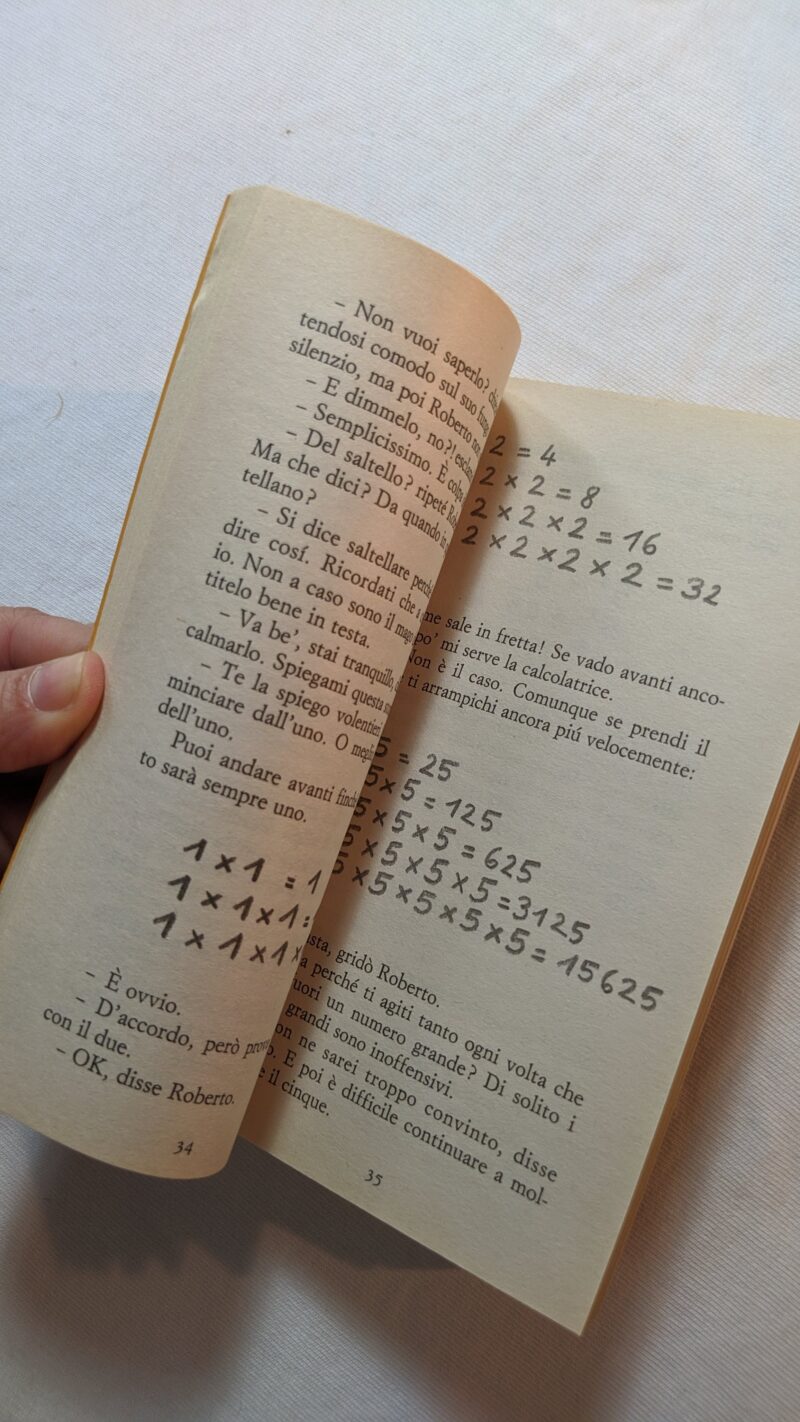 – Non vuoi saperlo?
tendosi comodo sul suo fungo
silenzio, ma poi Roberto
– E dimmelo, no?!
– Semplicissimo. È colpa
– Del saltello? ripeté
Ma che dici? Da quando in
tellano?
– Si dice saltellare perché
dire cosí. Ricordati che
io. Non a caso sono il mago
titelo bene in testa.
– Va be', stai tranquillo,
calmarlo. Spiegami questa
– Te la spiego volentieri
minciare dall'uno. O meglio
dell'uno.
Puoi andare avanti finché
to sarà sempre uno.
1 × 1 = 1
1 × 1 × 1 =
1 × 1 × 1 ×
– È ovvio.
– D'accordo, però prova
con il due.
– OK, disse Roberto.
34
2 = 4
2 × 2 = 8
2 × 2 × 2 = 16
2 × 2 × 2 × 2 = 32
me sale in fretta! Se vado avanti anco-
po' mi serve la calcolatrice.
Non è il caso. Comunque se prendi il
ti arrampichi ancora piú velocemente:
5 = 25
5 × 5 = 125
5 × 5 × 5 = 625
5 × 5 × 5 × 5 = 3125
5 × 5 × 5 × 5 × 5 = 15625
gridò Roberto.
perché ti agiti tanto ogni volta che
uori un numero grande? Di solito i
grandi sono inoffensivi.
on ne sarei troppo convinto, disse
E poi è difficile continuare a mol-
e il cinque.
35